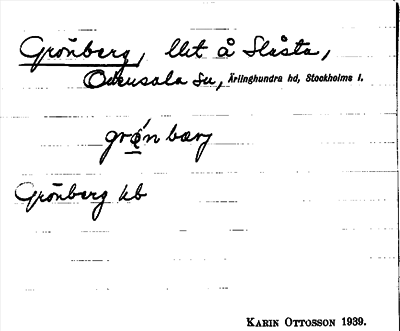 Grönberg, llet å Slåsta,
Odensala sn, Ärlinghundra hd, Stockholms l.
grø̄́n bærj
Grönberg kb
KARIN OTTOSSON 1939.